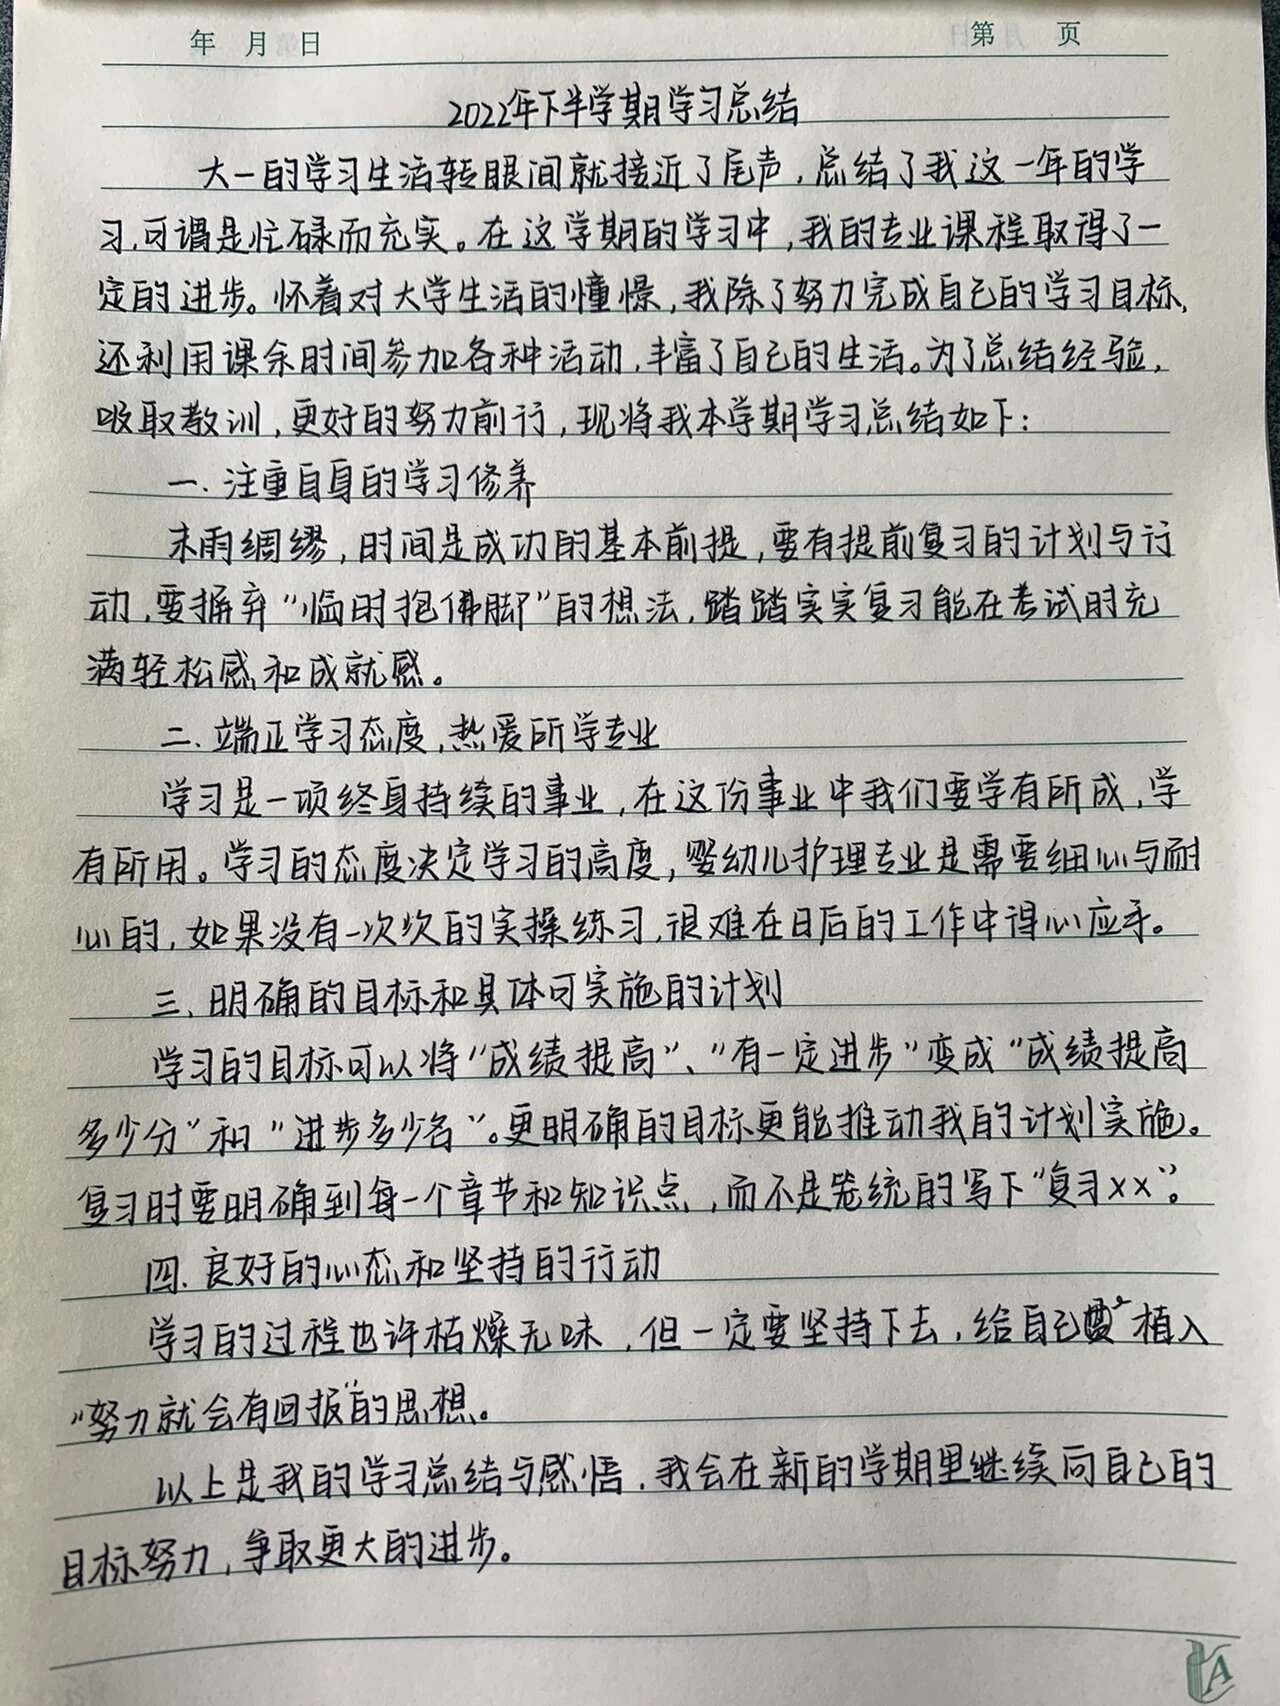 年 月 日 第 页
2022年下半学期学习总结
大一的学习生活转眼间就接近了尾声，总结了我这一年的学
习，可谓是忙碌而充实。在这学期的学习中，我的专业课程取得了一
定的进步。怀着对大学生活的憧憬，我除了努力完成自己的学习目标，
还利用课余时间参加各种活动，丰富了自己的生活。为了总结经验，
吸取教训，更好的努力前行，现将我本学期学习总结如下：
一．注重自身的学习修养
未雨绸缪，时间是成功的基本前提，要有提前复习的计划与行
动，要摒弃“临时抱佛脚”的想法，踏踏实实复习能在考试时充
满轻松感和成就感。
二．端正学习态度，热爱所学专业
学习是一项终身持续的事业，在这份事业中我们要学有所成，学
有所用。学习的态度决定学习的高度，婴幼儿护理专业是需要细心与耐
心的，如果没有一次次的实操练习，很难在日后的工作中得心应手。
三．明确的目标和具体可实施的计划
学习的目标可以将“成绩提高”、“有一定进步”变成“成绩提高
多少分”和“进步多少名”。更明确的目标更能推动我的计划实施。
复习时要明确到每一个章节和知识点，而不是笼统的写下“复习××”。
四．良好的心态和坚持的行动
学习的过程也许枯燥无味，但一定要坚持下去，给自己植入
“努力就会有回报”的思想。
以上是我的学习总结与感悟，我会在新的学期里继续向自己的
目标努力，争取更大的进步。
A